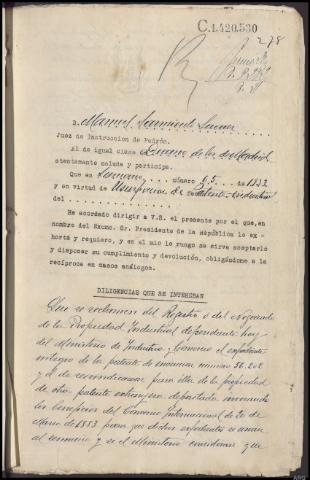 C.1.420.530
278
D. Manuel Sarmiento
Juez de Instrucción de Padrón.
Al de igual clase Decano de los de Madrid
atentamente saluda y participa.
Que en Sumario número 65 de 1932
y en virtud de Usurpación de Patente industrial
del
He acordado dirigir a V.S. el presente por el que, en
nombre del Excmo. Sr. Presidente de la República le ex-
horto y requiero, y en el mio le ruego se sirva aceptarlo
y disponer su cumplimiento y devolución, obligándome a lo
recíproco en casos análogos.
DILIGENCIAS QUE SE INTERESAN
Que se reclamen del Registro o del Negociado
de la Propiedad Industrial dependiente hoy
del Ministerio de Industria y Comercio el expediente
íntegro de la patente de invencion número 56.202
y el de reivindicacion para ella de la propiedad
de otra patente extranjera depositada invocando
los beneficios del Convenio Internacional de 20 de
Marzo de 1883 para que dichos expedientes se unan
al sumario y si el Ministerio considerara que